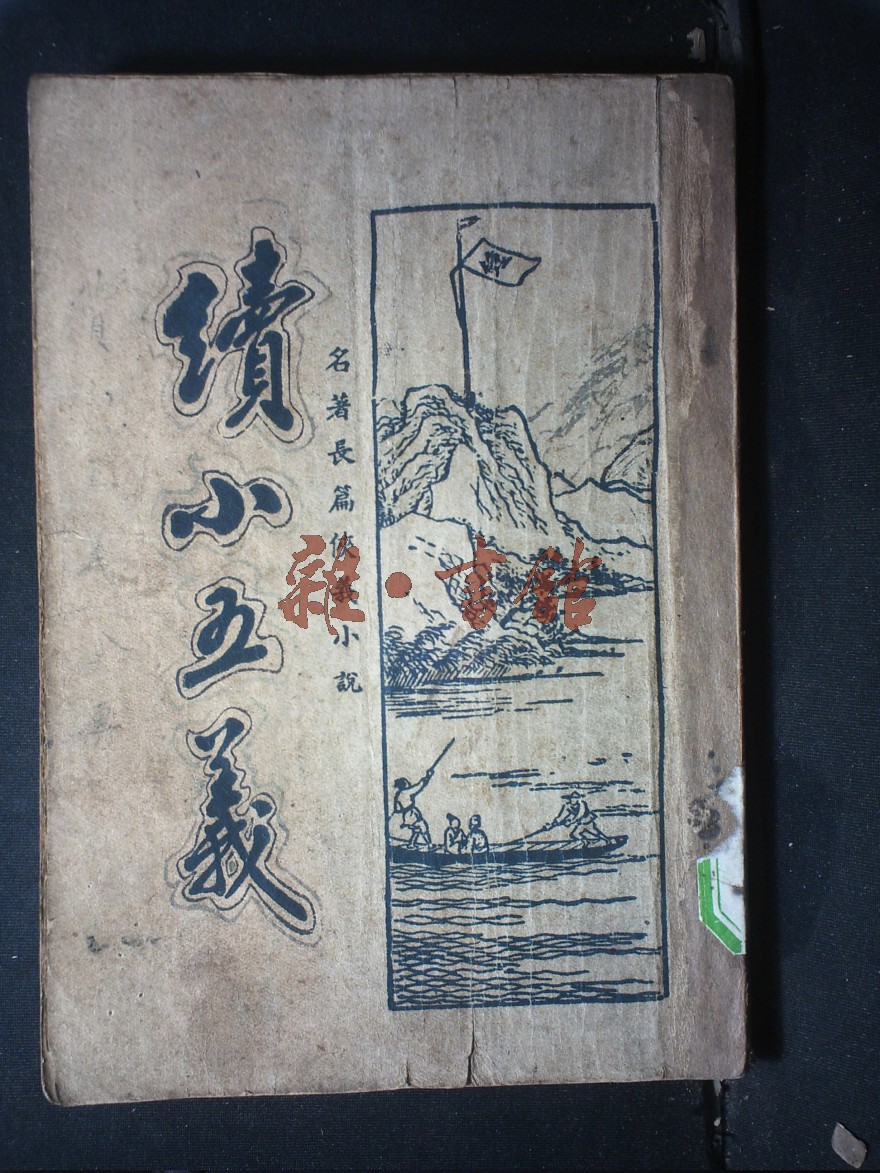 續小五義
名著長篇俠義小說
雜·書館